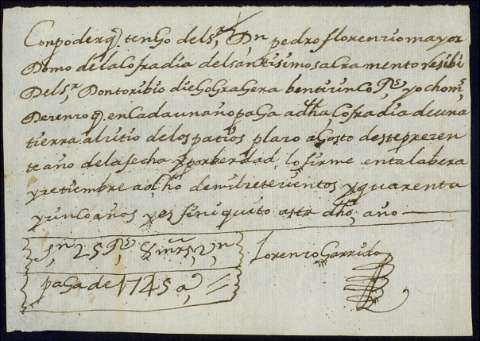 Con poder q. tengo del Sr. Dn pedro florenzio mayor
Domo de la Cofradia del santisimo sacramento resibi
Del Sr. Don toribio diego grahera benticinco Rs. y ocho mrs
De renzo q. en cada un año paga a dha Cofradia de una
tierra al sitio de los patios plazo agosto deste prezen
te año de la fecha y por berdad lo firme en talabera
y setiembre a dho de mil setecientos y quarenta
y cinco años y es finiquito asta dho año
Sn 25 Rs 8 mrs Vn
paga de 1745 as
Lorenzo Garrido